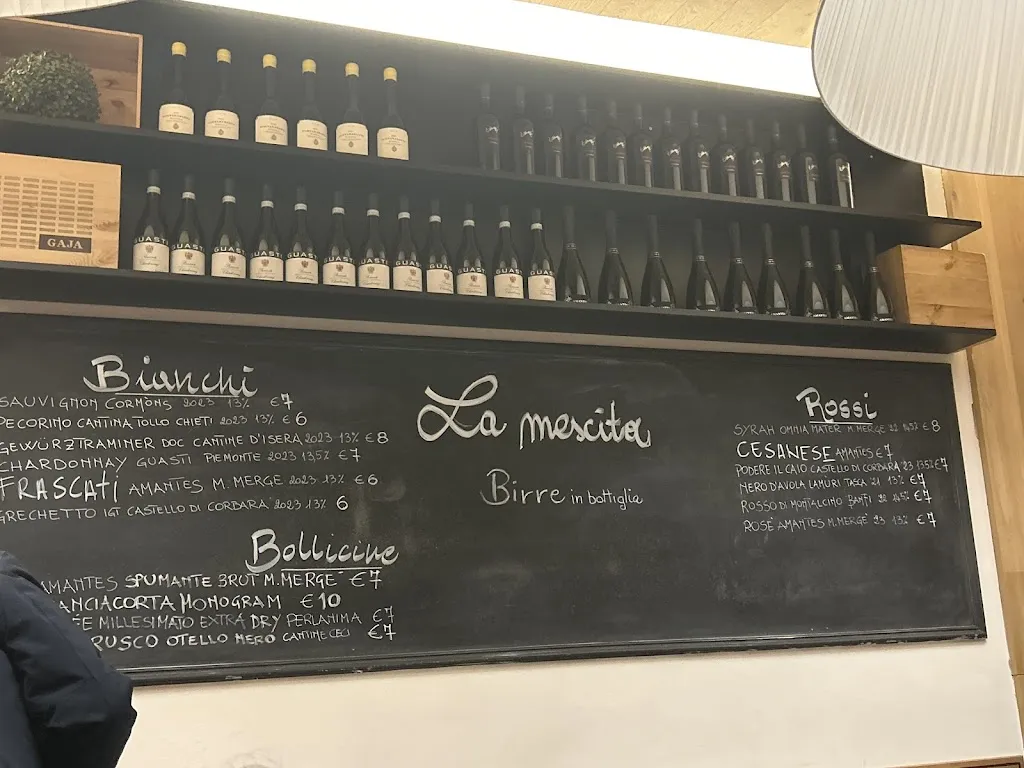 GAJA
GUASTI GUASTI GUASTI GUASTI GUASTI GUASTI
Bianchi
SAUVIGNON CORMÒNS 2023 13% €7
PECORINO CANTINA TOLLO CHIETI 2023 13% € 6
GEWÜRZTRAMINER DOC CANTINE D'ISERA 2023 13% € 8
CHARDONNAY GUASTI PIEMONTE 2023 13,5% € 7
FRASCATI AMANTES M. MERGE 2023 13% € 6
GRECHETTO IGT CASTELLO DI CORBARA 2023 13% 6
Bollicine
AMANTES SPUMANTE BRUT M. MERGE €7
ANCIACORTA MONOGRAM €10
MILLESIMATO EXTRA DRY PERLANIMA €7
RUSCO OTELLO NERO CANTINE CECI €7
La mescita
Birre in bottiglia
Rossi
SYRAH OMNIA MATER M. MERGE 22 € 8
CESANESE AMANTES €7
PODERE IL CAIO CASTELLO DI CORBARA 23 13,5% €7
NERO D'AVOLA LAMURI TASCA 21 13% €7
ROSSO DI MONTALCINO BANFI 22 €7
ROSÉ AMANTES M. MERGE 23 13% €7